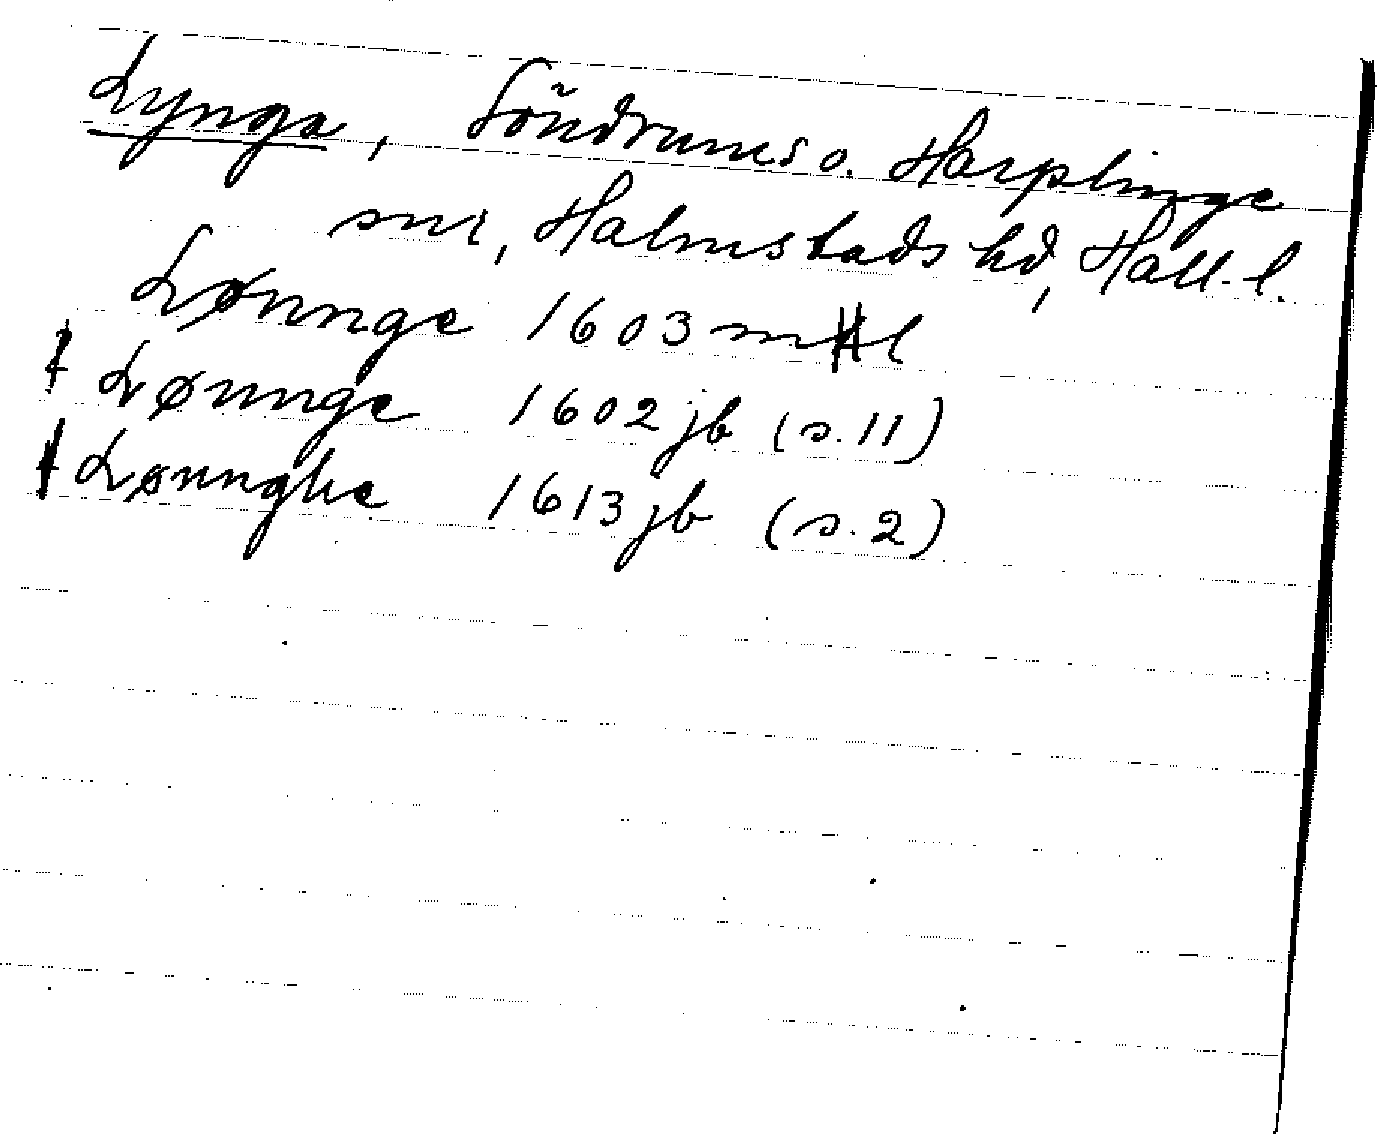 Lynga, Söndrums o. Harplinge
snr, Halmstads hd, Hall. l.
Lønnge 1603 mtl
Lønnge 1602 jb (s. 11)
Lønnghe 1613 jb (s. 2)